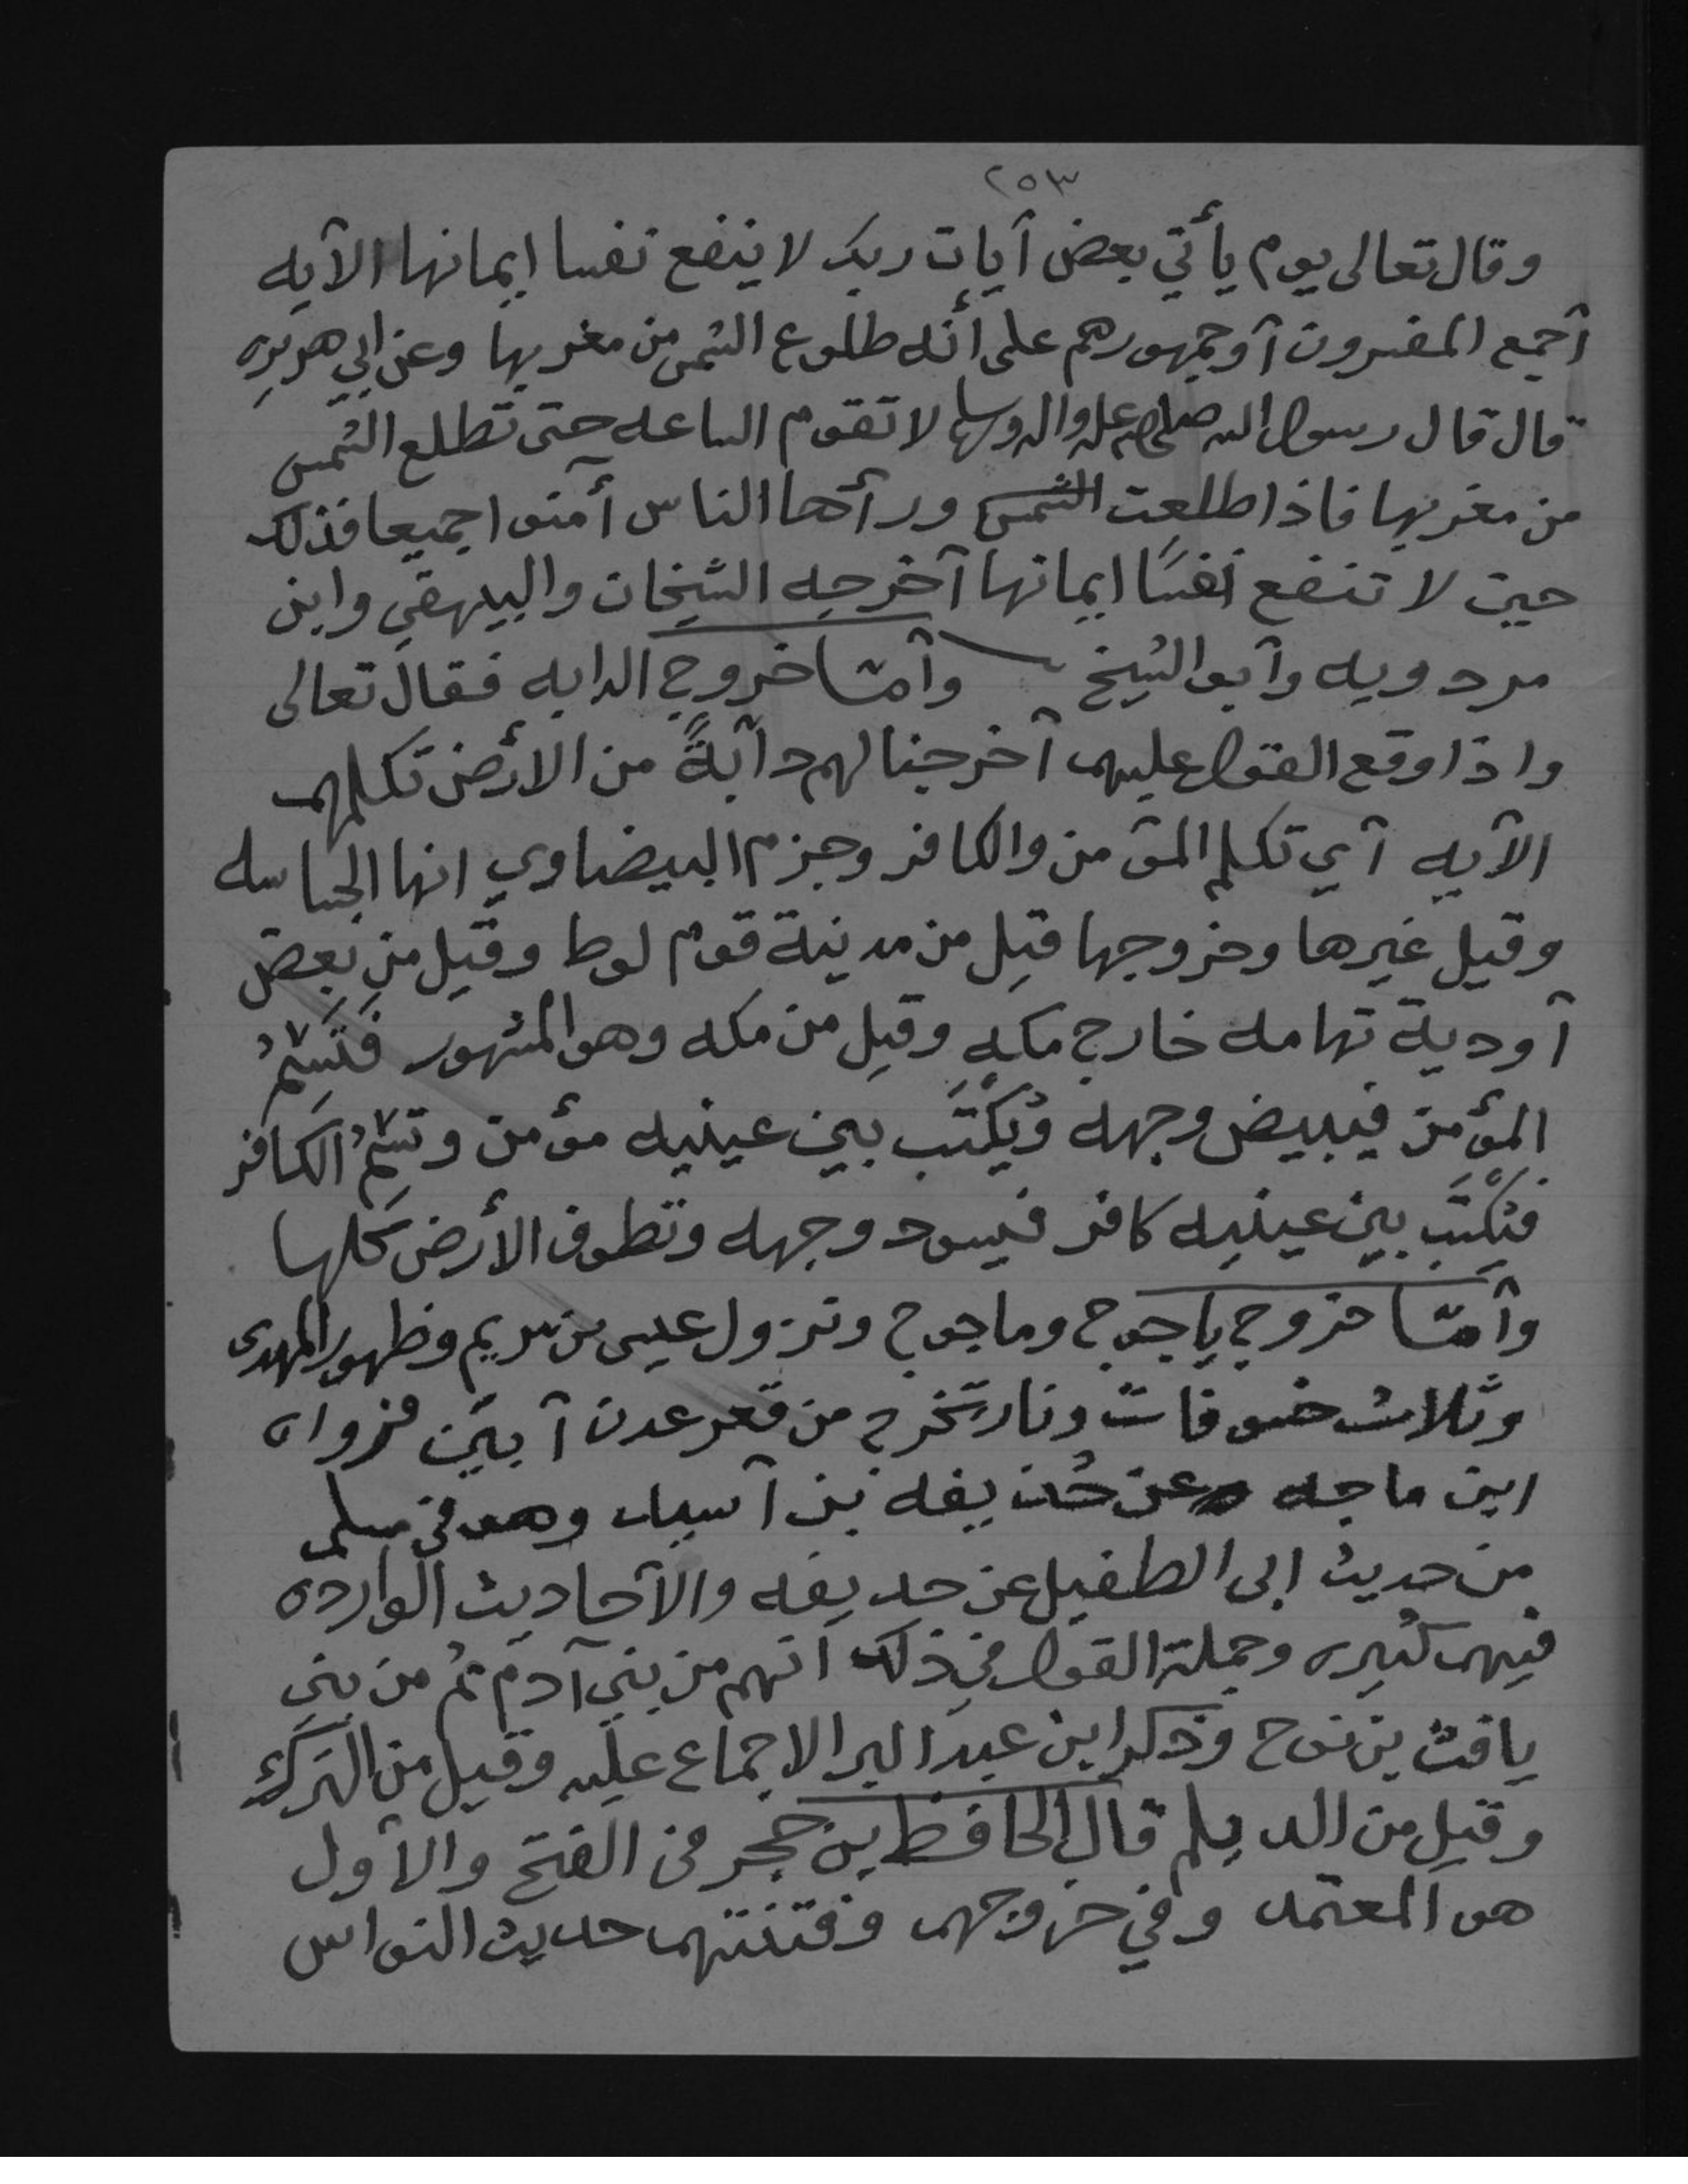 ٢٥٣
وقال تعالى يوم يأتي بعض آيات ربك لا ينفع نفسا إيمانها الآيه
آجمع المفسرون آوجمهورهم على أنّه طلوع الشمس من مغربها وعن ابي هريره
قال قال رسول الله صلى الله عليه واله وسلم لا تقوم الساعه حتى تطلع الشمس
من مغربها فاذا طلعت الشمس ورآها الناس آمنوا جميعا فذلك
حين لا تنفع نفسًا ايمانها آخرجه الشيخان والبيهقي وابن
مردويه وآبو الشيخ وآمّا خروج الدابه فقال تعالى
واذا وقع القول عليهم آخرجنا لهم دآبةً من الأرض تكلمهم
الآيه آي تكلم المؤمن والكافر وجزم البيضاوي انها الجساسه
وقيل غيرها وخروجها قيل من مدينة قوم لوط وقيل من بعض
آودية تهامه خارج مكه وقيل من مكه وهو المشهور فَتَسِمُ
المؤمن فيبيض وجهه ويُكْتَب بين عينيه مؤمن وتسِمُ الكافر
فيُكْتَب بين عينيه كافر فيسود وجهه وتطوف الأرض كلها
وآمّا خروج ياجوج وماجوج ونزول عيسى بن مريم وظهور المهدى
وثلاث خسوفات ونار تخرج من قعر عدن آبين فرواه
ابن ماجه عن حُذيفه بن آسيد وهو في مسلم
من حديث ابى الطفيل عن حذيفه والآحاديث الوارده
فيهم كثيره وجملة القول في ذلك انهم من بني آدم ثم من بني
يافث بن نوح وذكر ابن عبد البر الاجماع عليه وقيل من الترك
وقيل من الديلم قال الحافظ بن حجر في الفتح والآول
هو المعتمد وفي خروجهم وفتنتهم حديث النواس